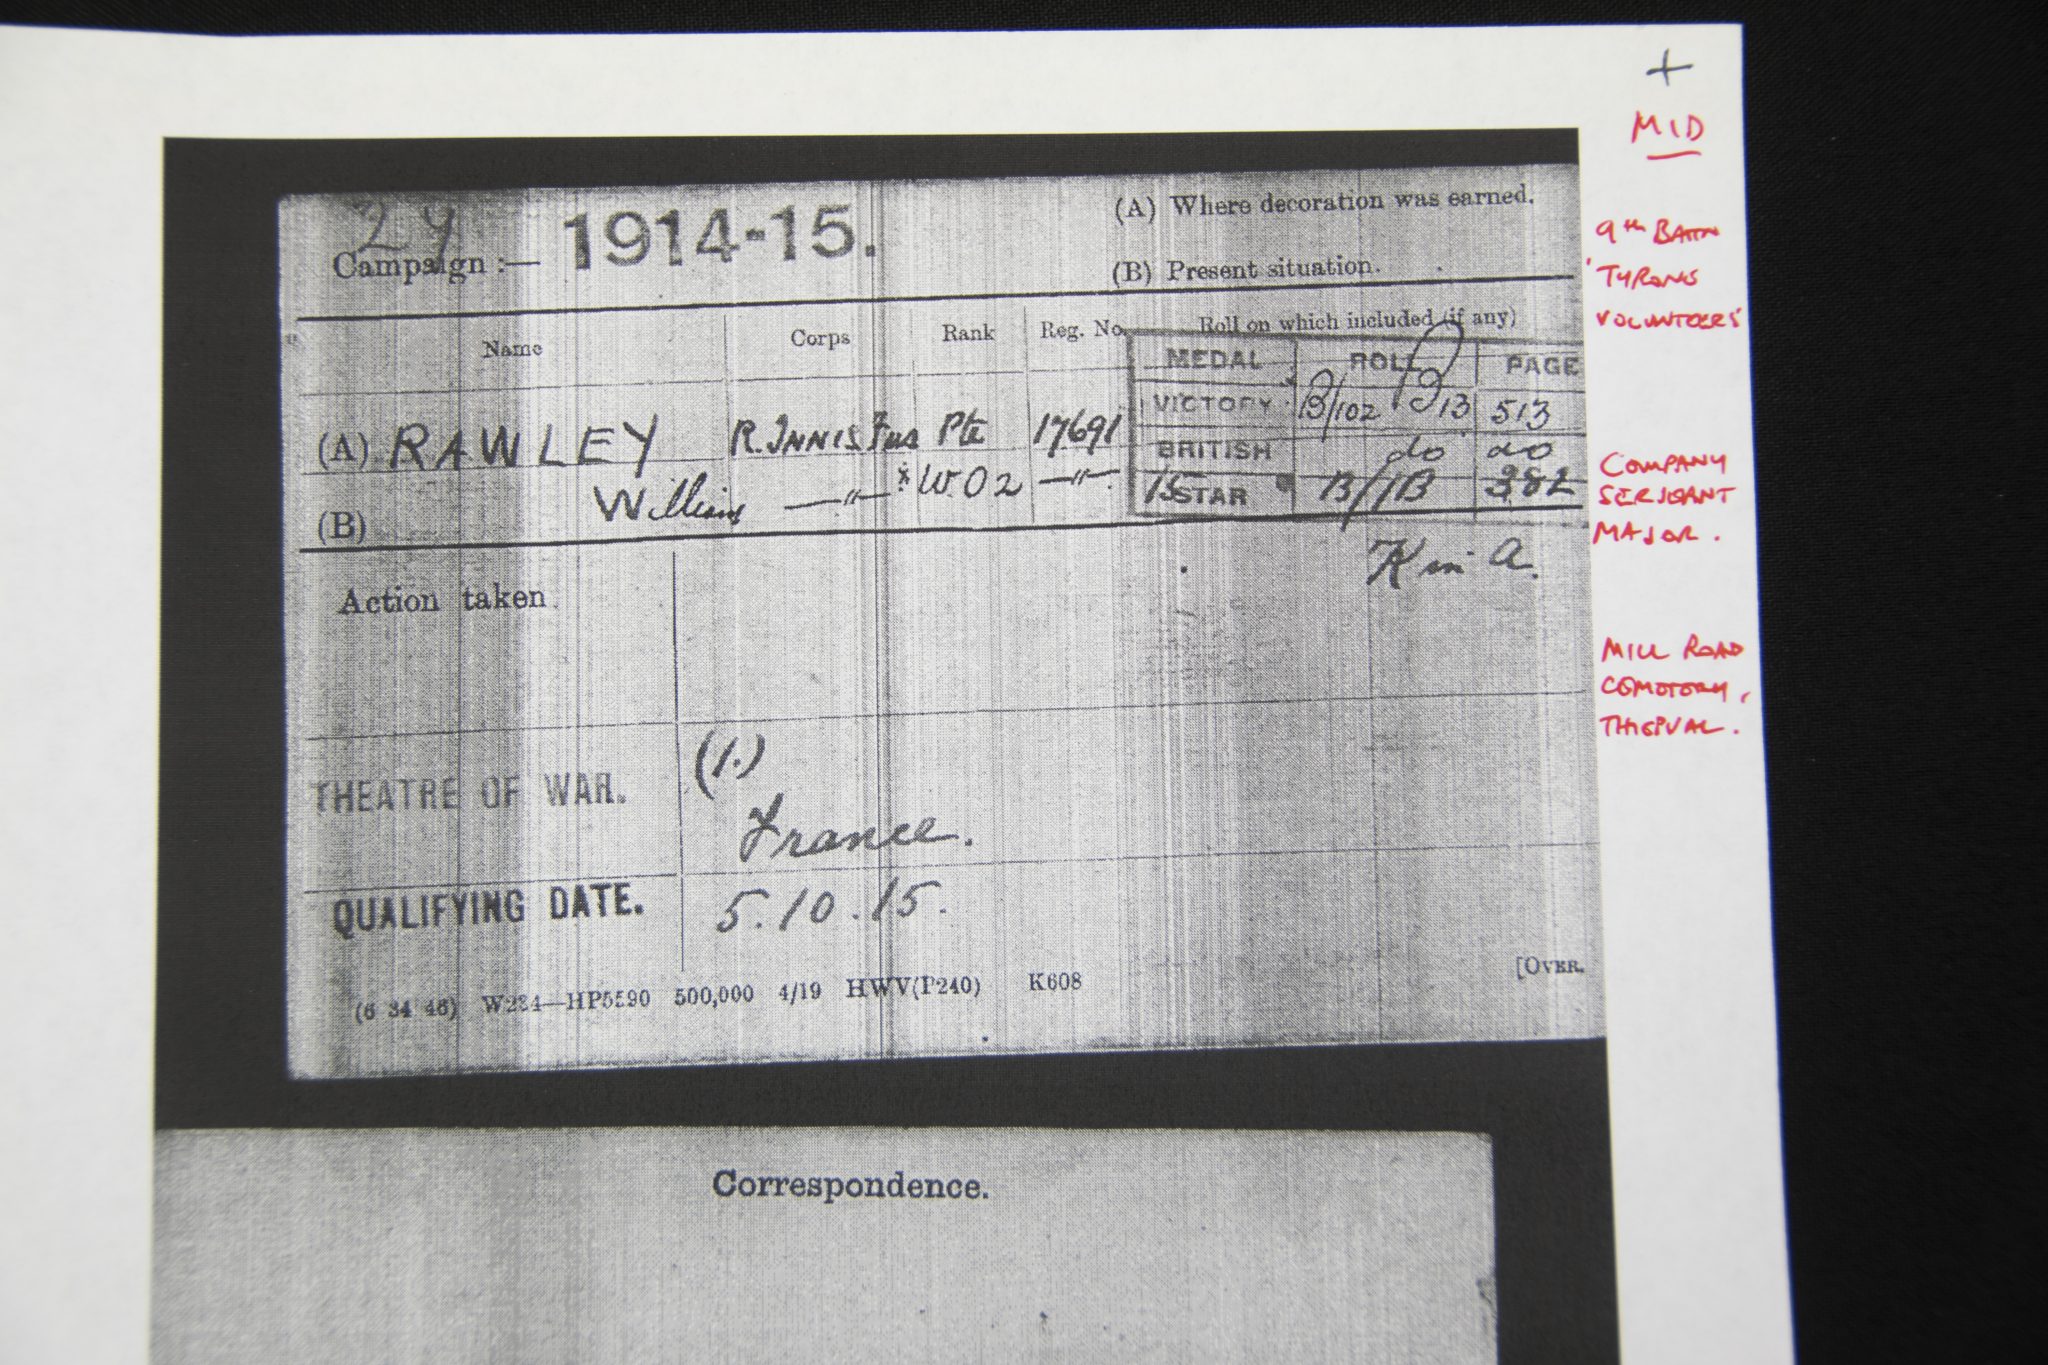 +
MID
24
Campaign :— 1914-15.
(A) Where decoration was earned.
(B) Present situation.
9th BATTN
TYRONE
VOLUNTEERS
Name Corps Rank Reg. No. Roll on which included (if any)
MEDAL ROLL PAGE
VICTORY B/102 B13 513
(A) RAWLEY R. INNIS Fus Pte 17691
BRITISH do do
William —"— * WO2 —"—
15 STAR B/1B 382
(B)
COMPANY
SERJEANT
MAJOR.
K in A.
Action taken
MILL ROAD
CEMETERY,
THIEPVAL.
THEATRE OF WAR. (1.)
France.
QUALIFYING DATE. 5.10.15.
[OVER.
(6 34 46) W234—HP5590 500,000 4/19 HWV(P240) K608
Correspondence.